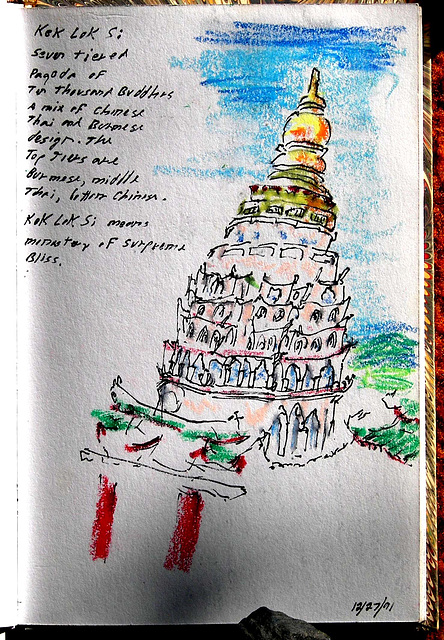 Kek Lok Si
Seven tiered
Pagoda of
Ten Thousand Buddhas
A mix of Chinese
Thai and Burmese
design. The
Top Tiers are
Burmese, middle
Thai, bottom Chinese.
Kek Lok Si means
monastery of Surpreme
Bliss.
12/27/01